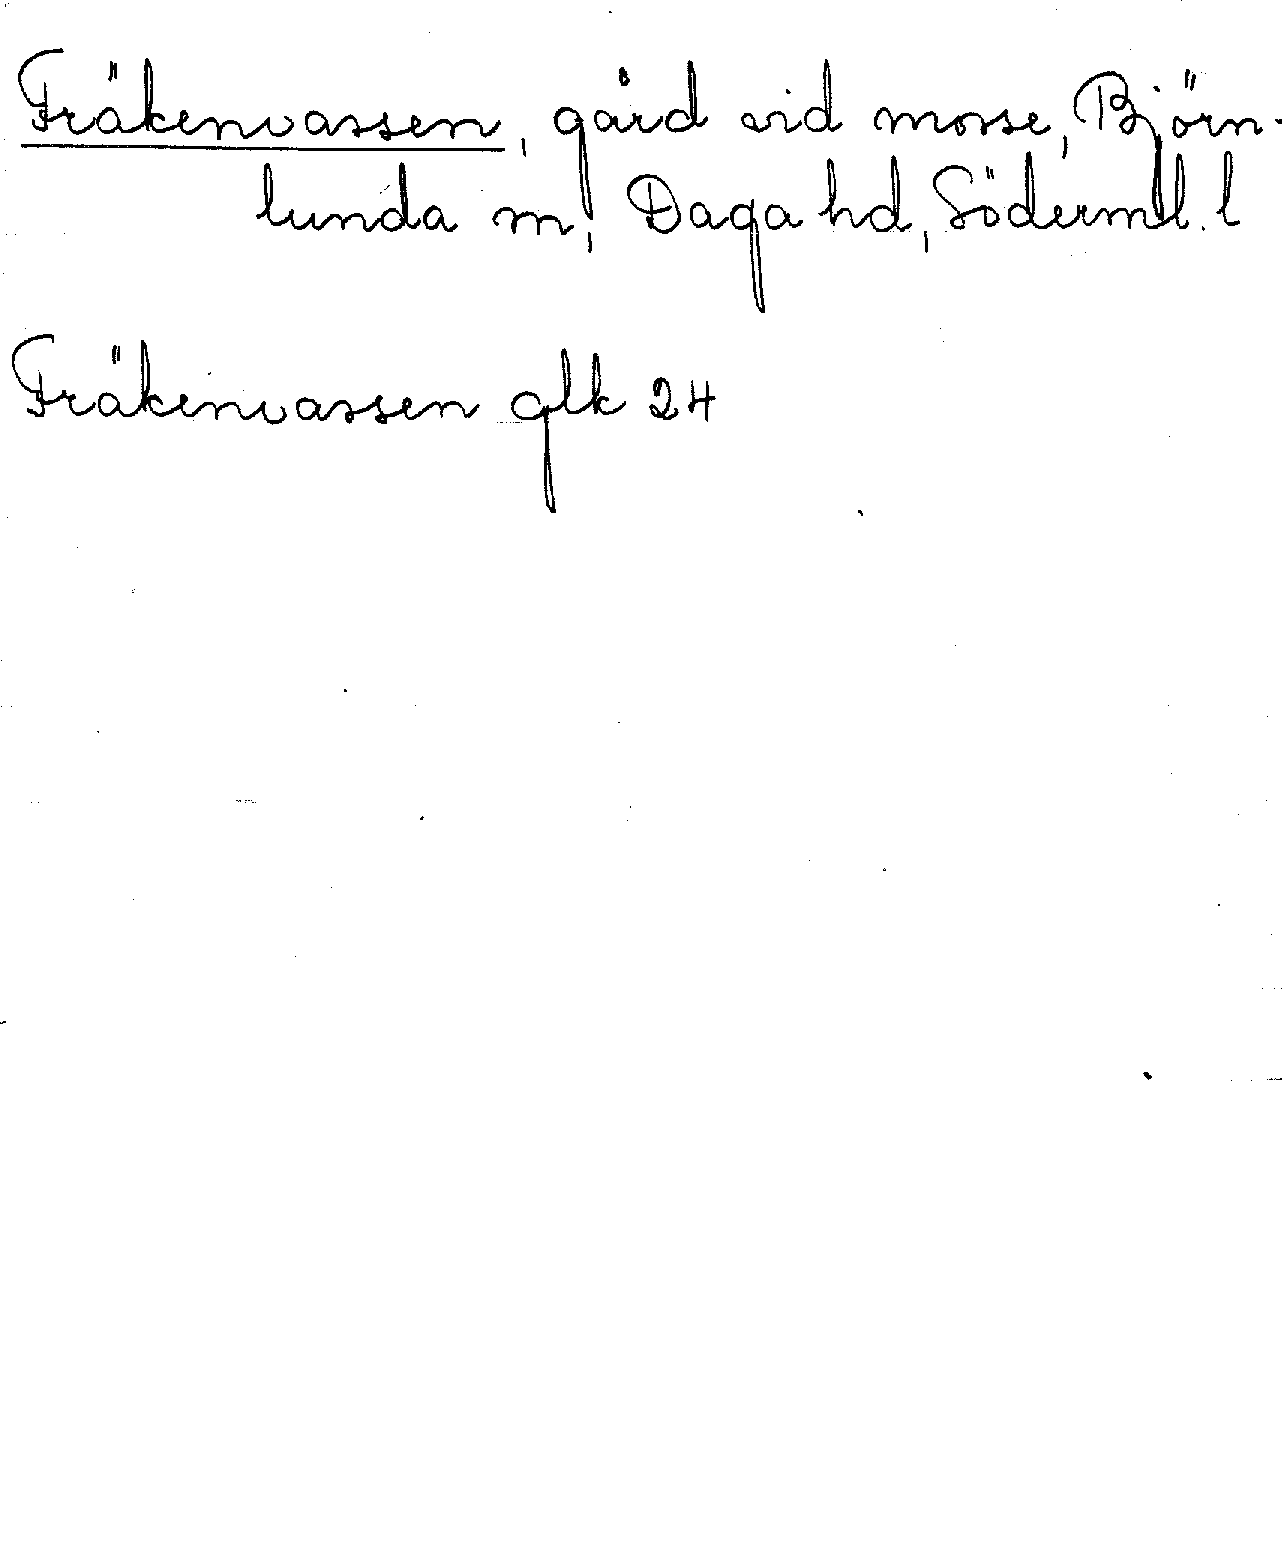 Fräkenvassen, gård vid mosse, Björn-
lunda sn, Daga hd, Söderml. l
Fräkenvassen glk 24